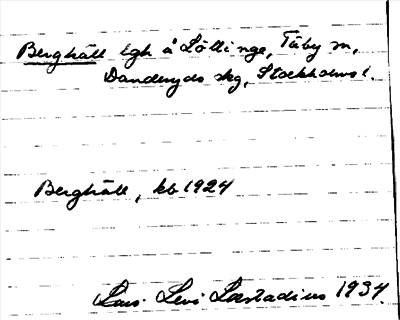 Berghäll lgh å Löttinge, Täby sn,
Danderyds skg, Stockholms l.
Berghäll, kb 1924
Lars Levi Læstadius 1934.